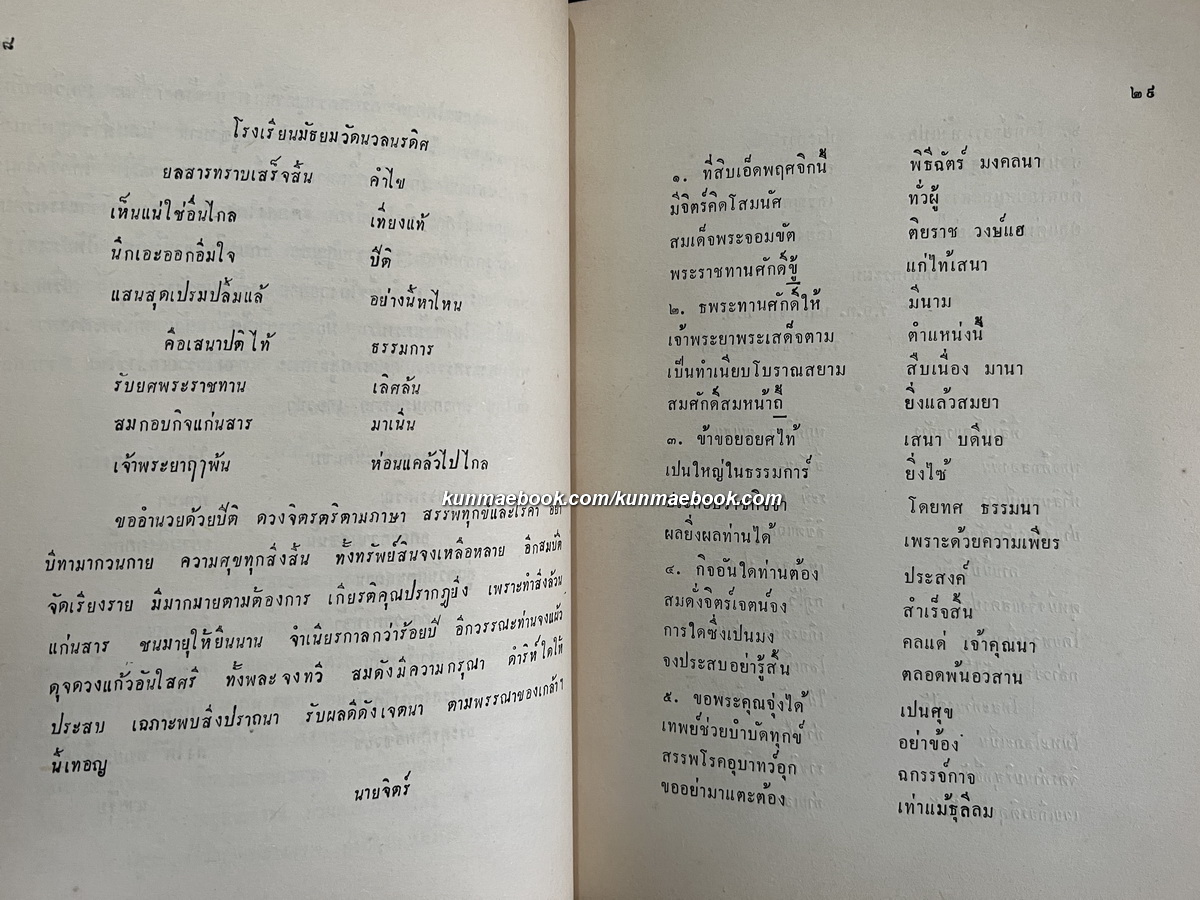 ๘
โรงเรียนมัธยมวัดนวลนรดิศ
ยลสารทราบเสร็จสิ้น คำไข
เห็นแน่ใช่อื่นไกล เที่ยงแท้
นึกเอะออกอิ่มใจ ปีติ
แสนสุดเปรมปลื้มแล้ อย่างนี้หาไหน
คือเสนาปติไท้ ธรรมการ
รับยศพระราชทาน เลิศล้น
สมกอบกิจแก่นสาร มาเนิ่น
เจ้าพระยาฤๅพ้น ห่อนแคล้วไปไกล
ขออำนวยด้วยปีติ ดวงจิตรตริตามภาษา สรรพทุกข์และโรคา อย่า
บีทามากวนกาย ความศุขทุกสิ่งสิ้น ทั้งทรัพย์สินจงเหลือหลาย อีกสมบัติ
จัดเรียงราย มีมากมายตามต้องการ เกียรติคุณปรากฎยิ่ง เพราะทำสิ่งล้วน
แก่นสาร ชนมายุให้ยืนนาน จำเนียรกาลกว่าร้อยปี อีกวรรณะท่านจงแผ้ว
ดุจดวงแก้วอันใสศรี ทั้งพละจงทวี สมดังมีความกรุณา ดำริห์ใดให้
ประสบ เฉภาะพบสิ่งปราถนา รับผลดีดังเจตนา ตามพรรณาของเกล้าฯ
นี้เทอญ
นายจิตร์
๒๙
๑. ที่สิบเอ็ดพฤศจิกนี้ พิธีฉัตร์ มงคลนา
มีจิตร์คิดโสมนัศ ทั่วผู้
สมเด็จพระจอมขัต ติยราช วงษ์แฮ
พระราชทานศักดิ์ขู้ แก่ไท้เสนา
๒. ธพระทานศักดิ์ให้ มีนาม
เจ้าพระยาพระเสด็จตาม ตำแหน่งนี้
เป็นทำเนียบโบราณสยาม สืบเนื่อง มานา
สมศักดิ์สมหน้าถี้ ยิ่งแล้วสมยา
๓. ข้าขอยอยศไท้ เสนา บดีนอ
เปนใหญ่ในธรรมการ์ ยิ่งไซ้
kunmaebook.com/kunmaebook.com
โดยทศ ธรรมนา
ผลยิ่งผลท่านได้ เพราะด้วยความเพียร
๔. กิจอันใดท่านต้อง ประสงค์
สมดั่งจิตร์เจตน์จง สำเร็จสิ้น
การใดซึ่งเปนมง คลแด่ เจ้าคุณนา
จงประสบอย่ารู้สิ้น ตลอดพ้นอวสาน
๕. ขอพระคุณจุ่งได้ เปนศุข
เทพย์ช่วยบำบัดทุกข์ อย่าข้อง
สรรพโรคอุบาทว์อุก ฉกรรจ์กาจ
ขออย่ามาแตะต้อง เท่าแม้ธุลีลม